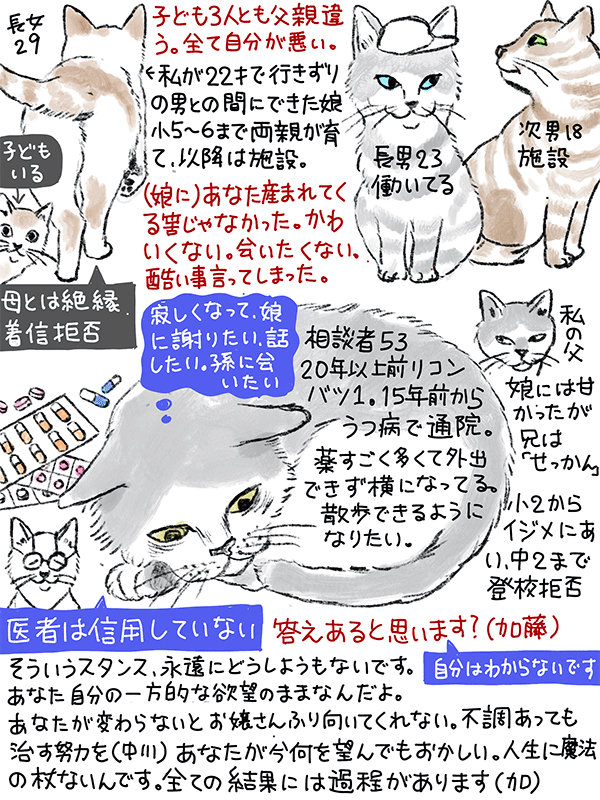 長女
29
子ども3人とも父親違
う。全て自分が悪い。
←私が22才で行きずり
の男との間にできた娘
小5〜6まで両親が育
て、以降は施設。
(娘に)あなた産まれてく
る筈じゃなかった。かわ
いくない。会いたくない。
酷い事言ってしまった。
長男23
働いてる
次男18
施設
子ども
いる
母とは絶縁。
着信拒否
寂しくなって、娘
に謝りたい、話
したい。孫に会
いたい
相談者53
20年以上前リコン
バツ1。15年前から
うつ病で通院。
薬すごく多くて外出
できず横になってる。
散歩できるように
なりたい。
私の父
娘には甘
かったが
兄は
「せっかん」
小2から
イジメにあ
い、中2まで
登校拒否
医者は信用していない
答えあると思います?(加藤)
自分はわからないです
そういうスタンス、永遠にどうしようもないです。
あなた自分の一方的な欲望のままなんだよ。
あなたが変わらないとお嬢さんふり向いてくれない。不調あっても
治す努力を(中川) あなたが今何を望んでもおかしい。人生に魔法
の杖ないんです。全ての結果には過程があります(加)